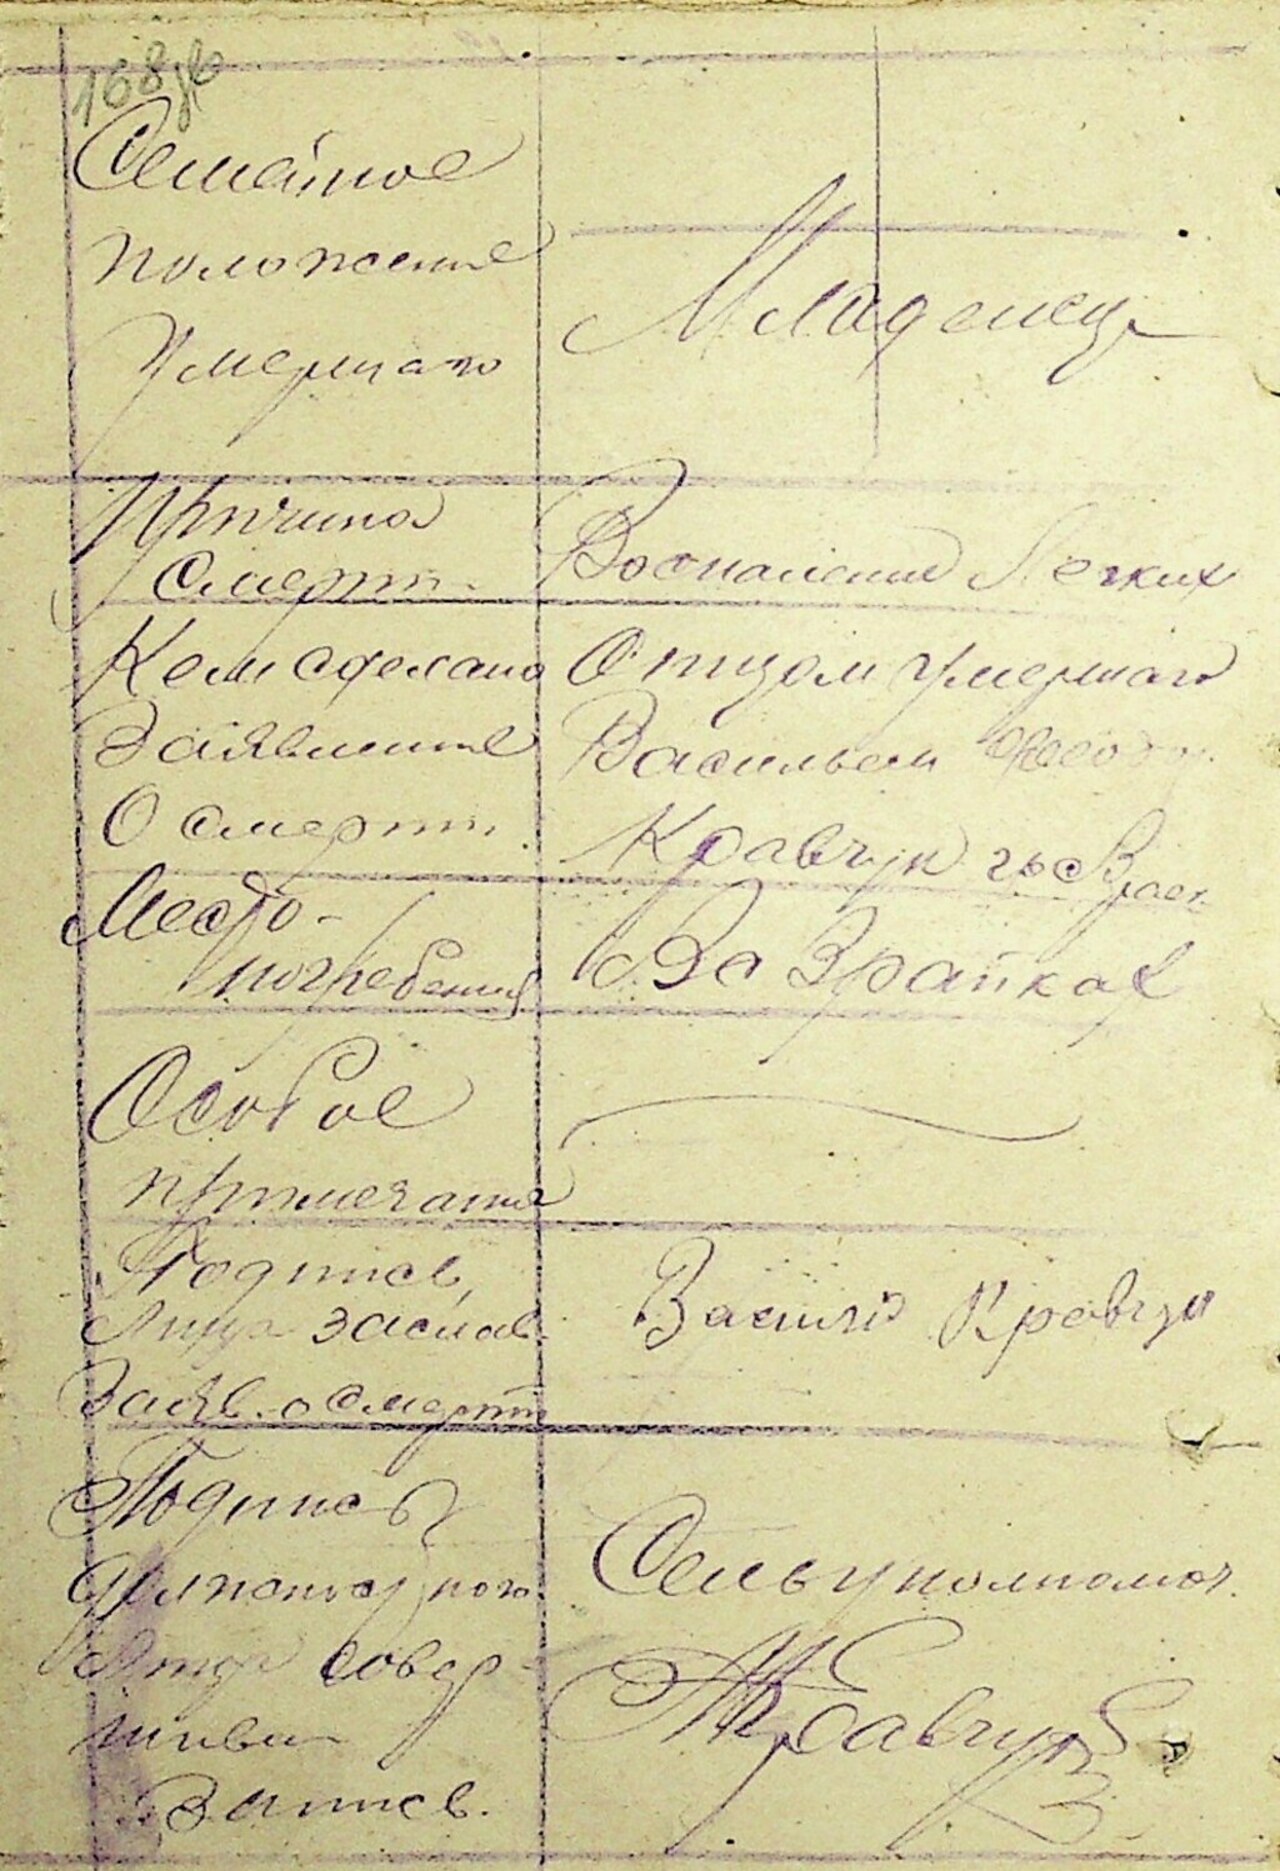 168
Семейное
положение
Умершаго
Младенец
Причина
Смерти
Воспаление Легких
Кем сделано
Заявление
О смерти
Отцом умершаго
Васильем
Кравчук
Место
погребения
В с Врайках
Особое
примечание
Подпись,
Лица заслав.
Заяв. о смерти
Василий Кравчук
Подпись
Должностного
Лица Совер-
шивш
Запись.
Сельуполномоч.
Кравчук